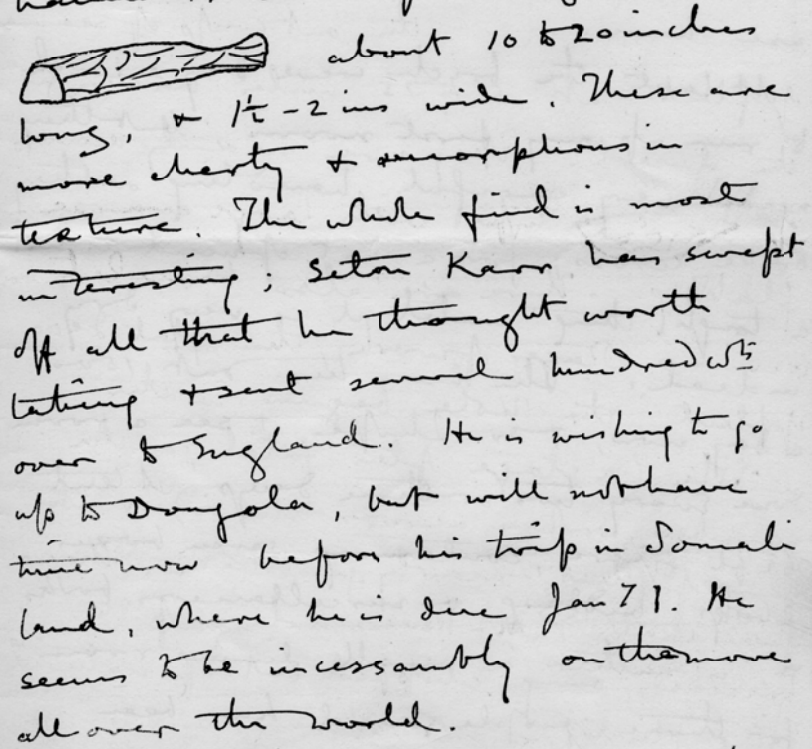 about 10 to 20 inches
long, & 1½ - 2 ins wide. These are
more cherty & amorphous in
texture. The whole find is most
interesting; Seton Karr has swept
off all that he thought worth
taking & sent several hundred wts
over to England. He is wishing to go
up to Dongola, but will not have
time now before his trip in Somali
land, where he is due Jan 71. He
seems to be incessantly on the move
all over the world.